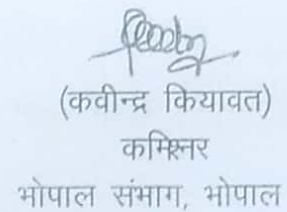 (कवीन्द्र कियावत)
कमिश्नर
भोपाल संभाग, भोपाल